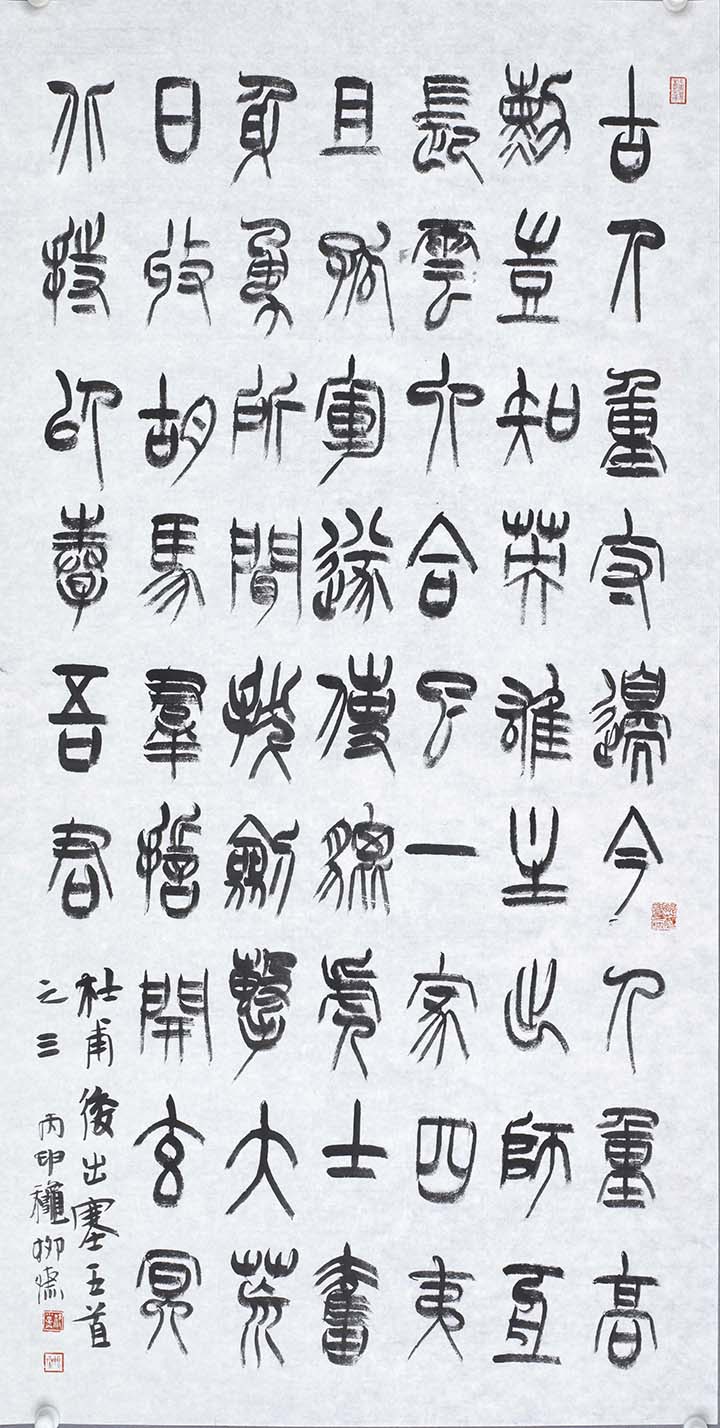 古人重守邊今人重高
勳豈知英雄主出師亘
長雲六合已一家四夷
且孤軍遂使貔虎士奮
身勇所間拔劍擊大荒
日收胡馬羣誓開玄冥
北持以奉吾君
杜甫後出塞五首
之三 丙申龝柳